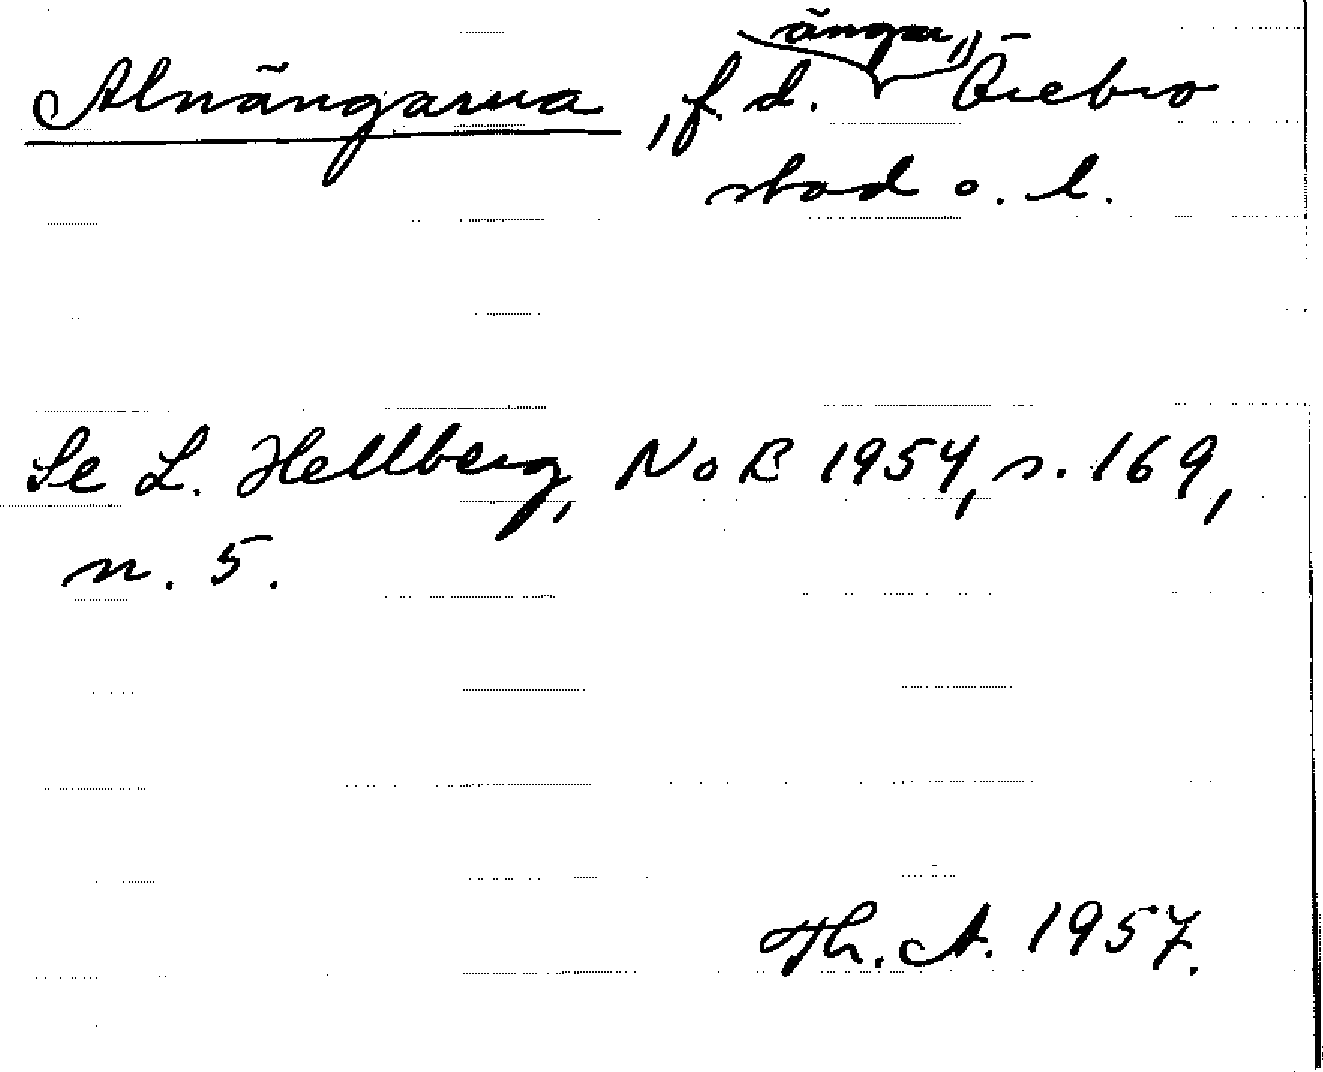 Alnängarna, f. d. ängar, Örebro
stad o. l.
Se L. Hellberg, NoB 1954, s. 169,
n. 5.
Th. A. 1957.